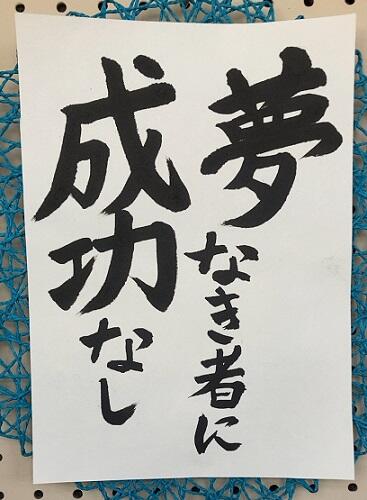 夢なき者に
成功なし